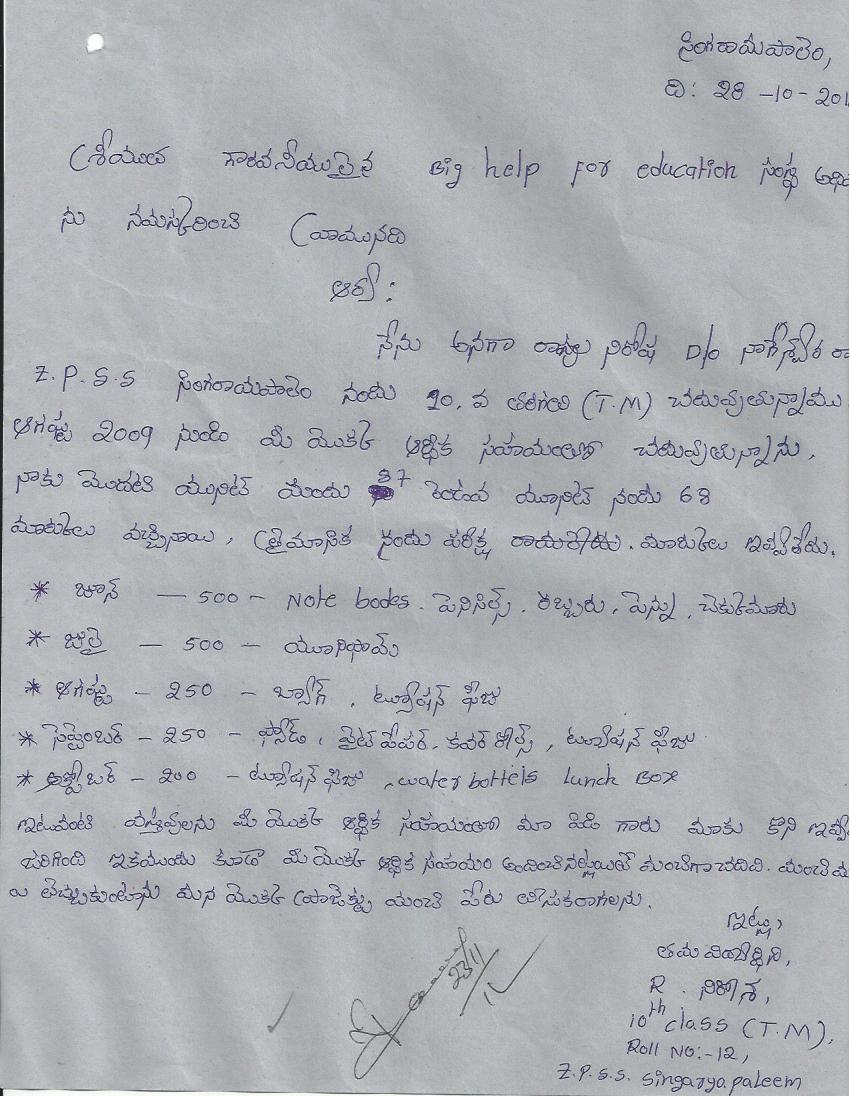 సింగరాయపాలెం,
ది: 28 -10- 201
శ్రీయుత గౌరవనీయులైన Big help for education సంస్థ
ను నమస్కరించి వ్రాయునది
ఆర్యా:
నేను అనగా నిరోష D/o నాగేశ్వర రా
Z.P.S.S సింగరాయపాలెం నందు 10. వ తరగతి (T.M) చదువుతున్నాను
ఆగష్టు 2009 నుండి మీ యొక్క ఆర్థిక సహాయంతో చదువుతున్నాను.
నాకు మొదటి యునిట్ నందు 87 రెండవ యూనిట్ నందు 68
మార్కులు వచ్చినాయి, త్రైమాసిక నందు పరీక్ష మార్కులు ఇవ్వలేదు.
* జూన్ — 500 – Note bodes. పెనిసిల్స్. రబ్బరు, పెన్ను, చెకుకమారు
* జులై — 500 – యూనిఫామ్
* ఆగష్టు – 250 – బ్యాగ్, ట్యూషన్ ఫీజు
* సెప్టెంబర్ – 250 – ప్యాడ్, వైట్ పేపర్. కవర్ రోల్స్, ట్యూషన్ ఫీజు
* అక్టోబర్ – 200 – ట్యూషన్ ఫీజు, water bottels lunch Box
ఇటువంటి వస్తువులను మీ యొక్క ఆర్థిక సహాయంతో మా పిడి గారు మాకు కొని
జరిగింది ఇకముందు కూడా మీ యొక్క ఆర్థిక సహాయం అందించినట్లయితే మంచిగా చదివి. మంచి మ
లు తెచ్చుకుంటాను మన యొక్క ప్రాజెక్టు మంచి పేరు తీసుకరాగలను.
ఇట్లు,
తమ విద్యార్థిని,
R. నిరోశ,
10th class (T.M),
Roll NO:-12,
Z.P.S.S. singarya paleem
23/11/